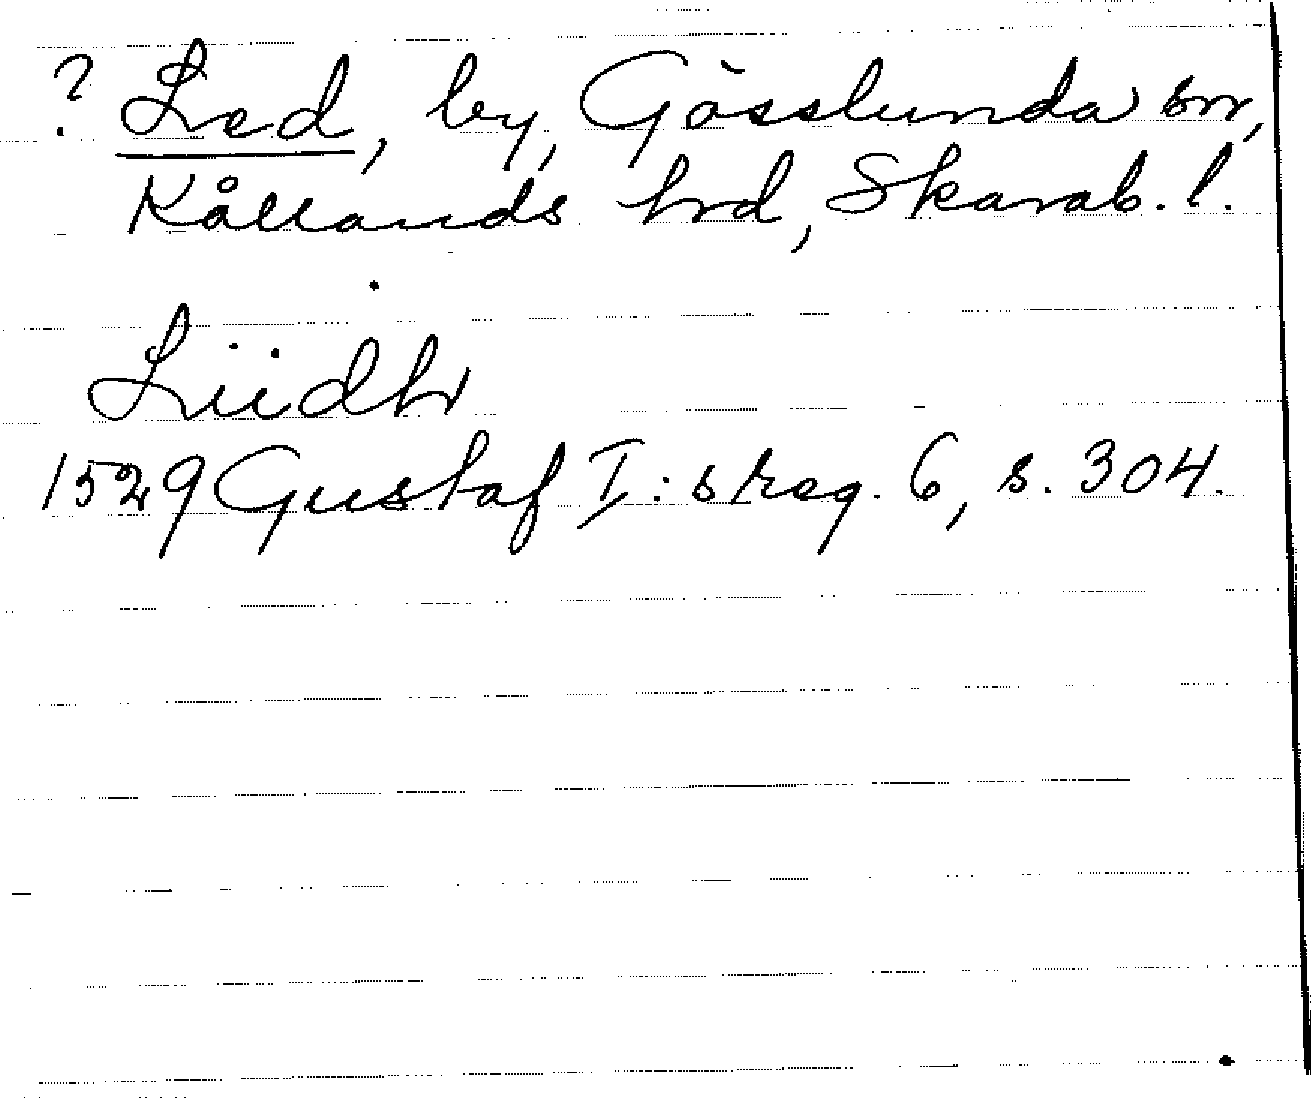 ? Led, by, Gösslunda sn,
Kållands hd, Skarab. l.
Liidh
1529 Gustaf I:s reg. 6, s. 304.